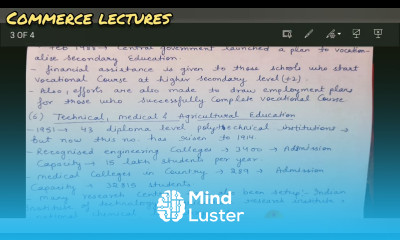 COMMERCE LECTURES
3 OF 4
Feb 1988 → Central government launched a plan to vocation-
alise Secondary Education.
- financial assistance is given to those schools who start
vocational Course at higher secondary level (+2)
- Also, efforts are also made to draw employment plans
for those who successfully complete vocational Course
Technical, Medical & Agricultural Education
- 1951 → 43 diploma level polytechnical institutions →
but now this no. has risen to 1914
- Recognised engineering Colleges → 3400 → Admission
Capacity → 15 lakh students per year
- Medical Colleges in Country → 289 → Admission
Capacity → 32815 students
- Many research been setup - Indian
of technology research institute,
Mind
Luster